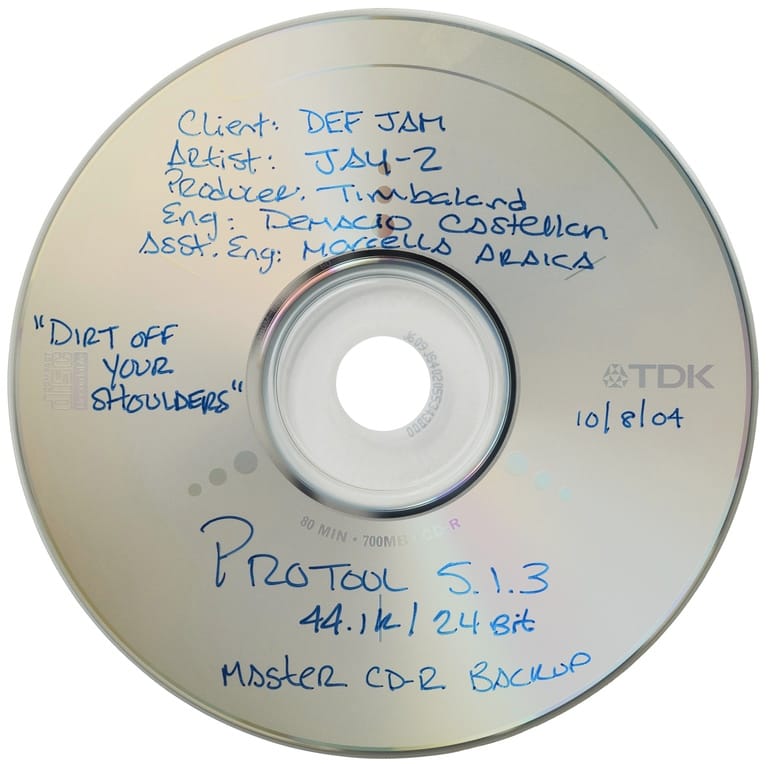 Client: DEF JAM
Artist: JAY-Z
Producer. Timbaland
Eng: Demacio Castellon
Asst. Eng: Marcella ARAICA
"DIRT OFF
YOUR
SHOULDERS"
TDK
10/8/04
80 MIN • 700MB CD-R
PROTOOL 5.1.3
44.1k/24 Bit
Master CD-R BACKUP